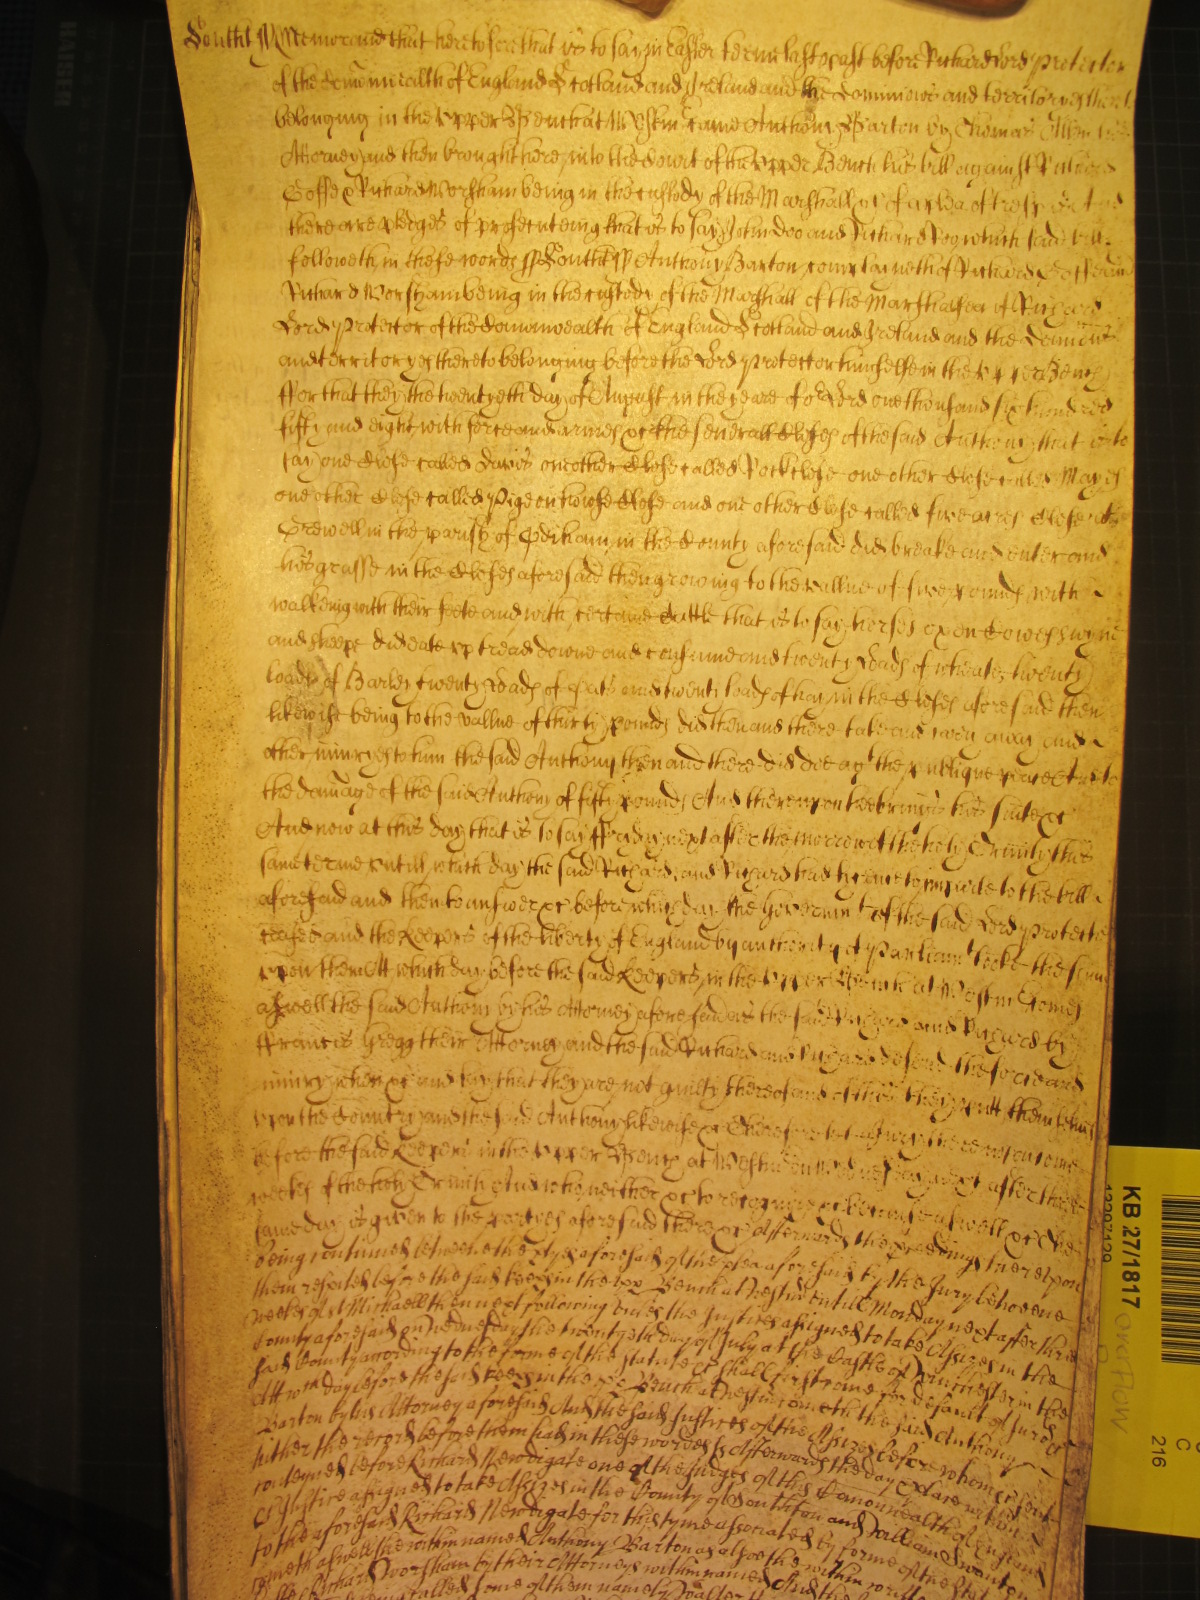 Southt ss Memorand that heretofore that is to say in Easter terme last past before Richard Lord Protector
of the Comonwealth of England Scotland and Ireland and the Dominions and territoryes thereto
belonging in the Upper Bench at Westm came Anthony Barton by Thomas Allen his
Attorney and then brought here into the Court of the Upper Bench his bill against Richard
Goffe & Richard Worsham being in the custody of the Marshall &c of a plea of trespas And
there are pledges of prosecuteing that is to say John Doo and Richard Roo which said bill
followeth in these words ss Southt ss Anthony Barton complaineth of Richard Goffe and
Richard Worsham being in the custody of the Marshall of the Marshalsea of Richard
Lord Protector of the Comonwealth of England Scotland and Ireland and the Dominions
and territoryes thereto belonging before the Lord Protector himselfe in the Upper Bench
ffor that they the twentyeth day of August in the yeare of or Lord one thousand six hundred
fifty and eight with force and armes &c the severall Closes of the said Anthony that is to
say one Close called Davis one other Close called Rockclose one other Close called
one other Close called Pigeonhouse Close and one other Close called five acres Close att
Grewell in the parish of Odiham in the County aforesaid did breake and enter and
his grasse in the Closes aforesaid then growing to the vallue of five pounds with
walkeing with their feete and with certaine Cattle that is to say horses oxen Cowes swyne
and sheepe did eate up tread downe and consume and twenty Loads of wheate twenty
loads of Barley twenty Loads of Oats and twenty loads of hay in the Closes aforesaid then
likewise being to the vallue of thirty pounds did then and there take and carry away and
other iniuryes to him the said Anthony then and there did doe agt the publique peace And to
the damage of the said Anthony of fifty pounds And thereupon hee brings his suite &c
And now at this day that is to say ffryday next after the morrow of the holy Trinity this
same terme untill which day the said Richard and Richard had lycence to imparle to the bill
aforesaid and then to answer &c before which day the Governmt of the said Lord Protector
ceased and the Keepers of the liberty of England by authority of Parliamt tooke the same
upon them Att which day before the said Keepers in the Upper Bench at Westm Comes
aswell the said Anthony by his Attorney aforesaid as the said Richard and Richard by
ffrancis Gregg their Attorney and the said Richard and Richard defend the force and
iniury when &c and say that they are not guilty thereof and of this they putt themselves
upon the Country and the said Anthony likewise &c Therefore let a Jury thereupon come
before the said Keepers in the Upper Bench at Westm on Wednesday next after three
weekes of the holy Trinity And who neither &c to recognize &c because aswell &c The
same day is given to the partyes aforesaid there &c Afterwards the &ceedings thereupon
being continued betweene the ptyes aforesaid of the plea aforesaid by the Jury betweene
them respited before the said Keeps in the upp Bench at Westm until Monday next after three
weekes of St Michaell then next following unles the Justices assigned to take Assizes in the
County aforesaid on Wednesday the twentyeth day of July at the Castle of Winchester in the
said County according to the forme of the Statute &c shall first come for default of Jurors
Att wch day before the said Keeps in the upp Bench at Westm cometh the said Anthony
Barton by his Attorney aforesaid And the said Justices of the Assizes before whom &c sent
hither the record before them had in these wordes ss Afterwards the day & place within
conteyned before Richard Newdigate one of the Judges of this Comonwealth of England
& Justice assigned to take Assizes in the County of Southton and William Swanton
to the aforesaid Richard Newdigate for this tyme associated by forme of the Stat
cometh aswell the within named Anthony Barton as also the within
Richard Worsham by their Attorneys within named And the
called some of them namely
KB 27/1817
C
216
HAMMER